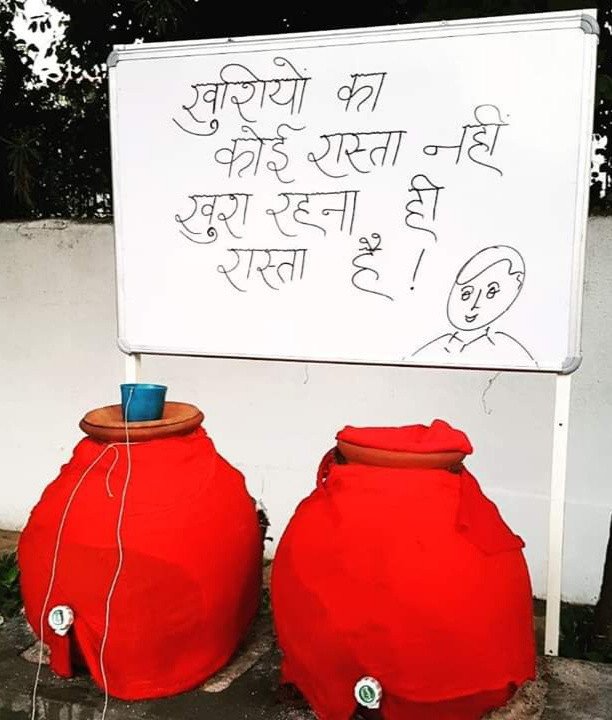 खुशियों का
कोई रास्ता नहीं
खुश रहना ही
रास्ता है !